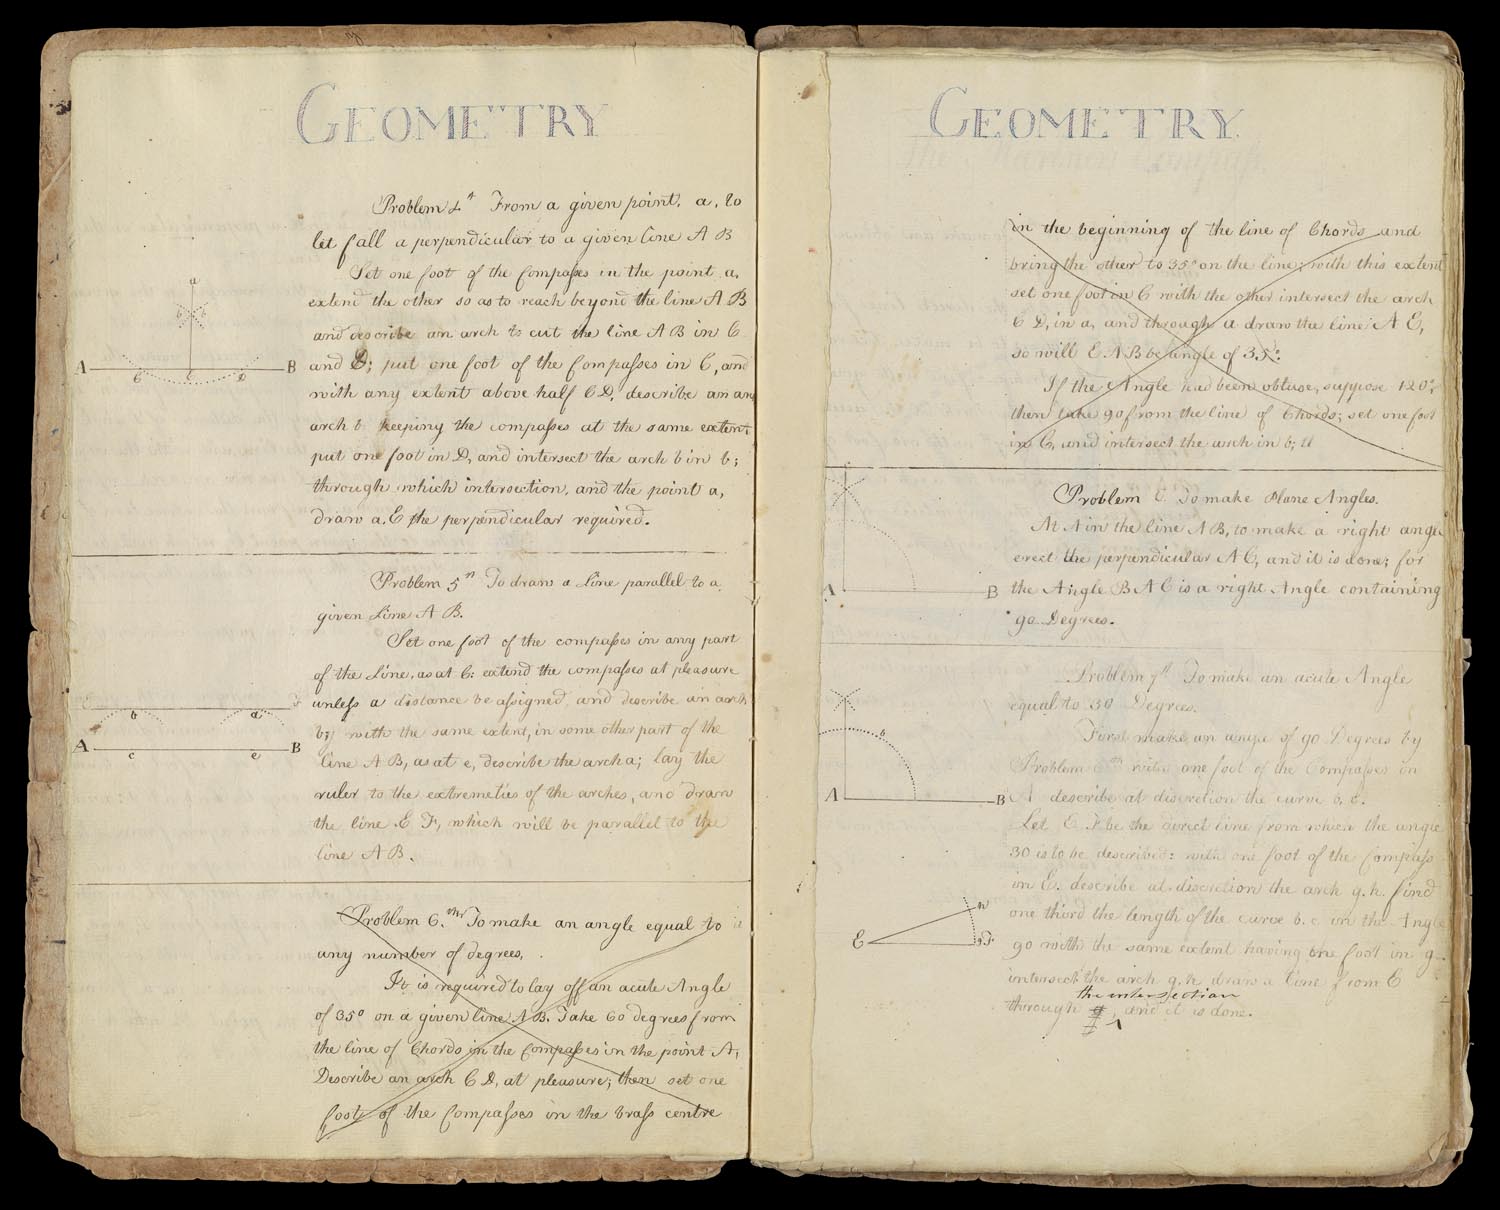 GEOMETRY
Problem 4th From a given point, a, to
let fall a perpendicular to a given line A B
Set one foot of the Compasses in the point a,
extend the other so as to reach beyond the line A B
and describe an arch to cut the line A B in C
and D; put one foot of the Compasses in C, and
with any extent above half C D, describe an
arch b keeping the compasses at the same extent,
put one foot in D, and intersect the arch b in b;
through which intersection, and the point a,
draw a. E the perpendicular required.
a
b b
A B
C E D
Problem 5th To draw a Line parallel to a
given Line A B.
Set one foot of the compasses in any part
of the Line, as at C: extend the compasses at pleasure
unless a distance be assigned, and describe an arch
b; with the same extent, in some other part of the
line A B, as at e, describe the arch a; lay the
ruler to the extremeties of the arches, and draw
the line E F, which will be parallel to the
line A B.
E F
b a
A B
c e
Problem 6. To make an angle equal to
any number of degrees.
It is required to lay off an acute Angle
of 35° on a given line A B. Take 60 degrees from
the line of Chords in the Compasses in the point A,
Describe an arch C D, at pleasure; then set one
foot of the Compasses in the brass centre
GEOMETRY
in the beginning of the line of Chords and
bring the other to 35° on the line; with this extent
set one foot in C with the other intersect the arch
C D, in a, and through a draw the line A E,
so will E A B be angle of 35°.
If the Angle had been obtuse, suppose 120°,
then take 90 from the line of Chords; set one foot
in C, and intersect the arch in b;
Problem 6. To make plane Angles.
At A in the line A B, to make a right angle
erect the perpendicular A C, and it is done; for
the Angle B A C is a right Angle containing
90 Degrees.
C
A B
Problem 7th To make an acute Angle
equal to 30 Degrees.
First make an angle of 90 Degrees by
Problem with one foot of the Compasses in
A describe at discretion the curve b. c.
Let E F be the direct line from which the angle
30 is to be described: with one foot of the Compass
in E. describe at discretion the arch g. h. find
one third the length of the curve b. c in the Angle
90 with the same extent having one foot in g
intersect the arch g. h draw a line from E
the intersection
through , and it is done.
A B
E F